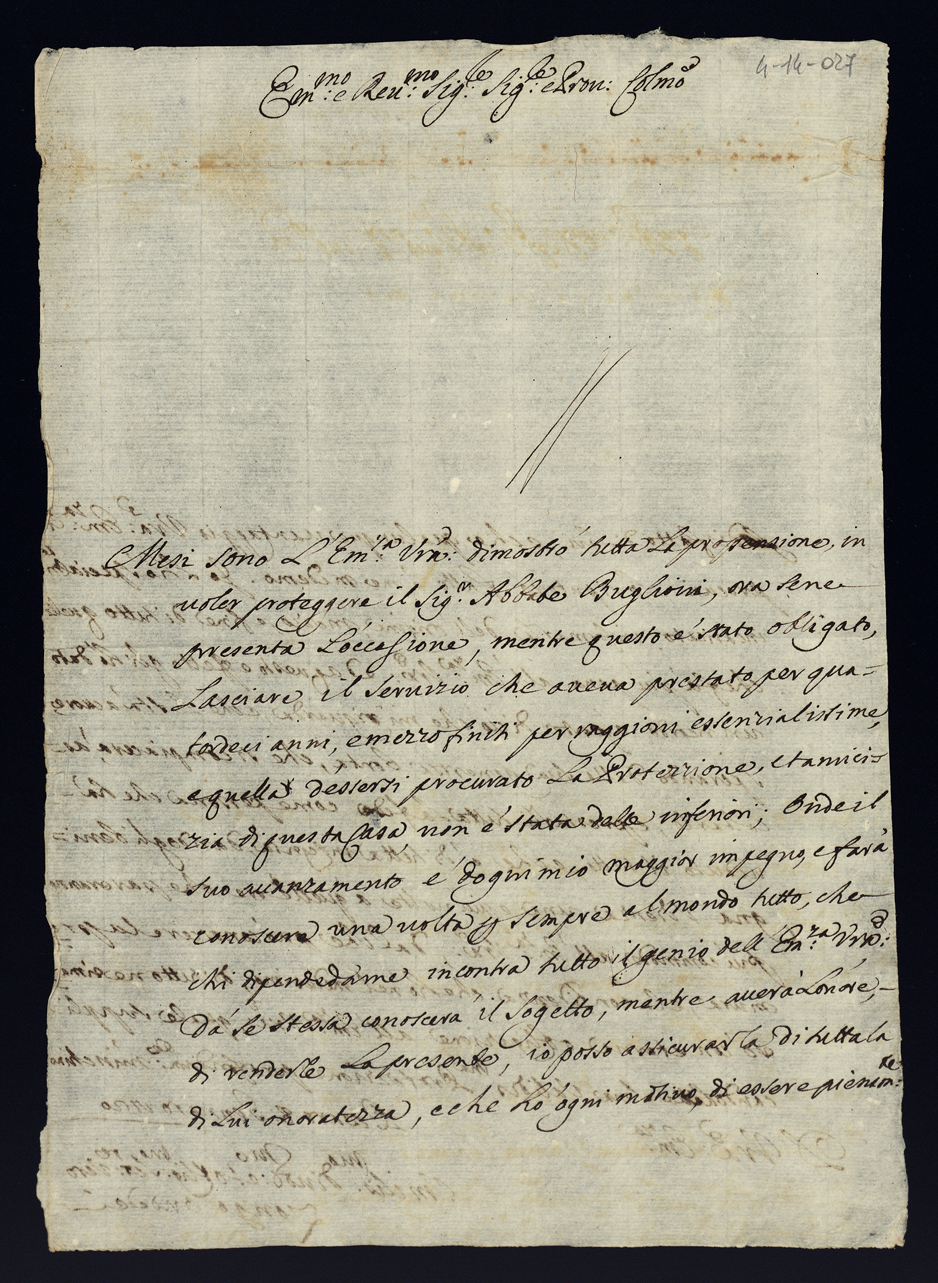 4-14-027
Em:mo e Reu:mo Sig:re Sig:re e Pron: Colmo
Mesi sono L'Em:za Vra: dimostrò tutta La propensione, in
uoler proteggere il Sig:r Abbate Buglioni, ora sene
presenta L'occasione, mentre questo é stato obligato,
Lasciare il seruizio che aueua prestato per qua=
tordeci anni, e mezzo finiti per raggioni essenzialissime,
e quella dessersi procurato La Protezzione, et amici=
zia di questa Casa, non é stata delle inferiori; Onde il
suo auanzamento é dogni mio maggior impegno, e farà
conoscere una uolta p sempre al mondo tutto, che
chi dipende da me incontra tutto il genio dell' Em:za Vra:
Dá se stessa conoscerá il sogetto, mentre auerà Lonore,
di renderle La presente, io posso assicurarla di tutta la
di Lui onoratezza, e che hó ogni motiuo, di essere pienam:te